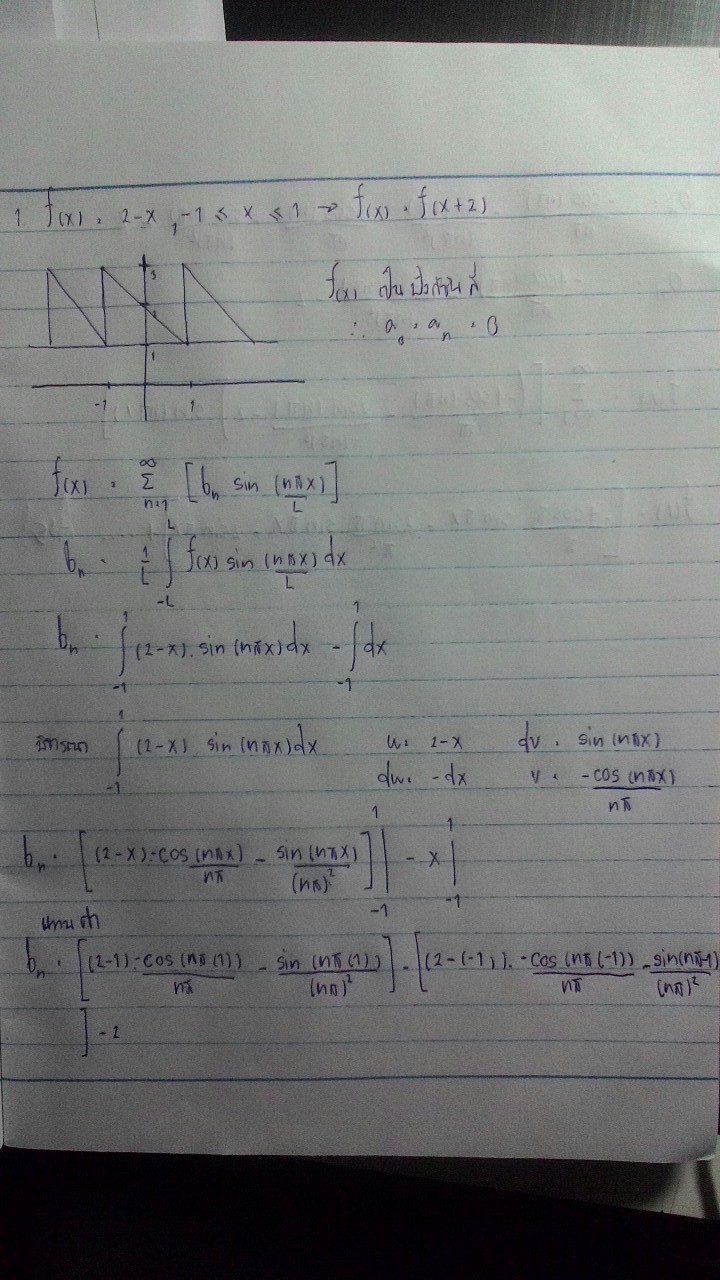 1 f(x) = 2-x , -1 ≤ x ≤ 1 → f(x) = f(x+2)
3
2
1
-1 1
f(x) เป็นฟังก์ชันคี่
∴ a₀ = aₙ = 0
f(x) = ∞Σn=1 [bₙ sin (nπx)/L]
bₙ = 1/L ∫_{-L}^{L} f(x) sin (nπx)/L dx
bₙ = ∫_{-1}^{1} (2-x). sin (nπx) dx - ∫_{-1}^{1} dx
พิจารณา ∫_{-1}^{1} (2-x) sin (nπx) dx u = 2-x dv = sin (nπx)
du = -dx v = -cos (nπx)/nπ
bₙ = [(2-x).-cos (nπx)/nπ - sin (nπx)/(nπ)²]|_{-1}^{1} - x|_{-1}^{1}
แทนค่า
bₙ = [(2-1).-cos (nπ(1))/nπ - sin (nπ(1))/(nπ)²] - [(2-(-1)).-cos (nπ(-1))/nπ - sin(nπ-1)/(nπ)²
] - 2